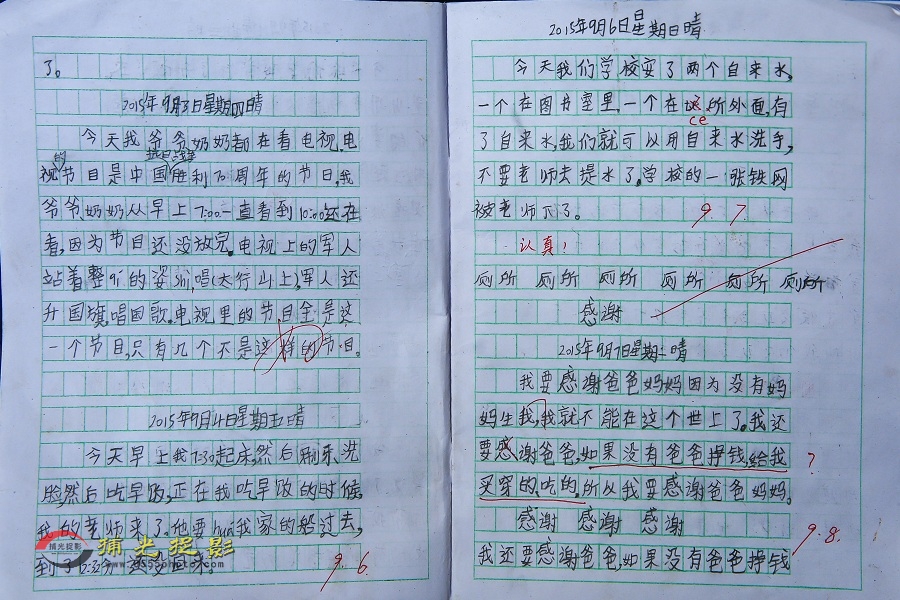 了。
2015年9月3日星期四晴
今天我爷爷奶奶都在看电视,电
视的节目是中国抗日战争胜利70周年的节日,我
爷爷奶奶从早上7:00一直看到10:00还在
看,因为节目还没放完。电视上的军人
站着整qi的姿shi,唱(太行山上),军人还
升国旗,唱国歌。电视里的节目全是这
一个节目,只有几个不是这样的节目。
2015年9月4日星期五晴
今天早上我7:30起床,然后刷牙洗
脸然后吃早饭,正在我吃早饭的时候,
我的老师来了。他要 我家的船过去,
到了 还没回来。
捕光捉影
9. 6.
2015年9月6日星期日晴
今天我们学校安了两个自来水,
一个在图书室里,一个在 所外面,有
ce
了自来水,我们就可以用自来水洗手,
不要老师去提水了。学校的一张铁网
被老师下了。
9 7.
认真!
厕所 厕所 厕所 厕所 厕所 厕所
感谢
2015年9月7日星期二晴
我要感谢爸爸妈妈因为没有妈
妈生我,我就不能在这个世上了。我还
要感谢爸爸,如果没有爸爸挣钱,给我
?
买穿的,吃的,所以我要感谢爸爸妈妈。
感谢 感谢 感谢
9.8.
我还要感谢爸爸,如果没有爸爸挣钱